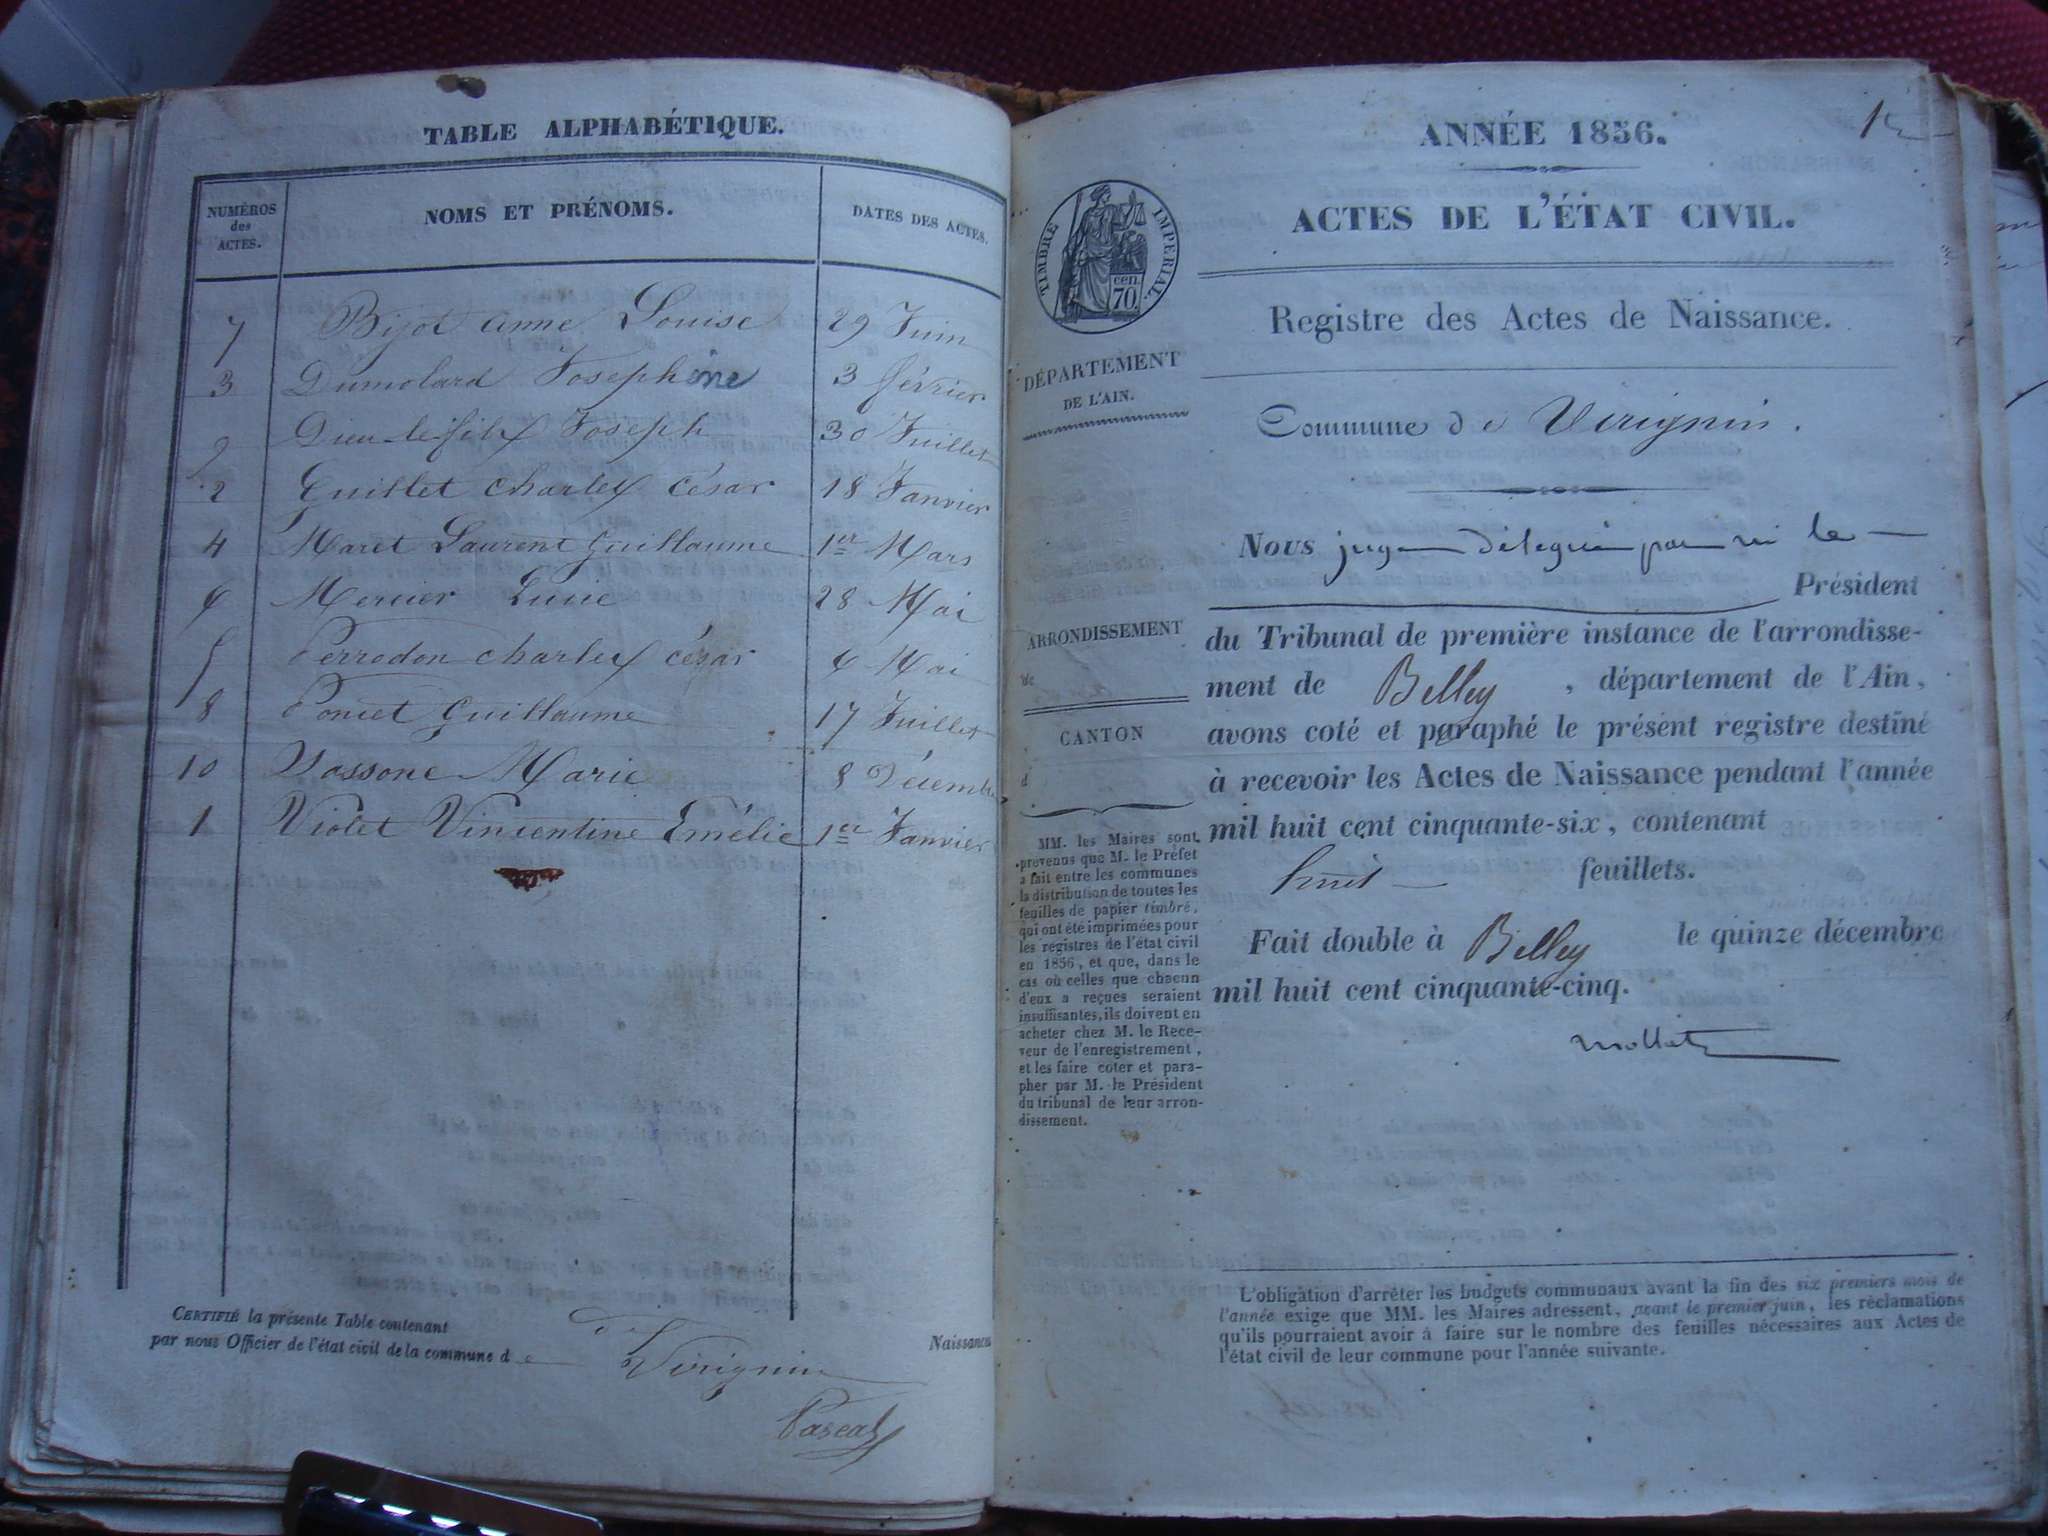 TABLE ALPHABÉTIQUE.
NUMÉROS des ACTES. NOMS ET PRÉNOMS. DATES DES ACTES.
7 Bijot anne Louise 29 Juin
3 Dumolard Josephine 3 février
9 Dieu-le-fils Joseph 30 Juillet
2 Guillet Charles César 18 Janvier
4 Maret Laurent Guillaume 1er Mars
6 Mercier Lucie 28 Mai
5 Perrodon Charles César 6 Mai
8 Poncet Guillaume 17 Juillet
10 Vassone Marie 8 Décembre
1 Violet Vincentine Emélie 1er Janvier
CERTIFIÉ la présente Table contenant Naissances
par nous Officier de l'état civil de la commune de
Virignin
Pascal
ANNÉE 1856.
ACTES DE L'ÉTAT CIVIL.
TIMBRE IMPERIAL.
cen.
70.
Registre des Actes de Naissance.
DÉPARTEMENT
DE L'AIN.
Commune de Virignin.
Nous juge délégué par mr le
Président
ARRONDISSEMENT
de
CANTON
d
du Tribunal de première instance de l'arrondisse-
ment de Belley, département de l'Ain,
avons coté et paraphé le présent registre destiné
à recevoir les Actes de Naissance pendant l'année
mil huit cent cinquante-six, contenant
huit feuillets.
Fait double à Belley le quinze décembre
mil huit cent cinquante-cinq.
MM. les Maires sont
prévenus que M. le Préfet
a fait entre les communes
la distribution de toutes les
feuilles de papier timbré,
qui ont été imprimées pour
les registres de l'état civil
en 1856, et que, dans le
cas où celles que chacun
d'eux a reçues seraient
insuffisantes, ils doivent en
acheter chez M. le Rece-
veur de l'enregistrement,
et les faire coter et para-
pher par M. le Président
du tribunal de leur arron-
dissement.
L'obligation d'arrêter les budgets communaux avant la fin des six premiers mois de
l'année exige que MM. les Maires adressent, avant le premier juin, les réclamations
qu'ils pourraient avoir à faire sur le nombre des feuilles nécessaires aux Actes de
l'état civil de leur commune pour l'année suivante.